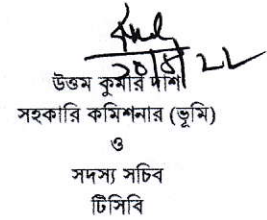 ২০/৪/২২
উত্তম কুমার দাশ
সহকারি কমিশনার (ভূমি)
ও
সদস্য সচিব
টিসিবি